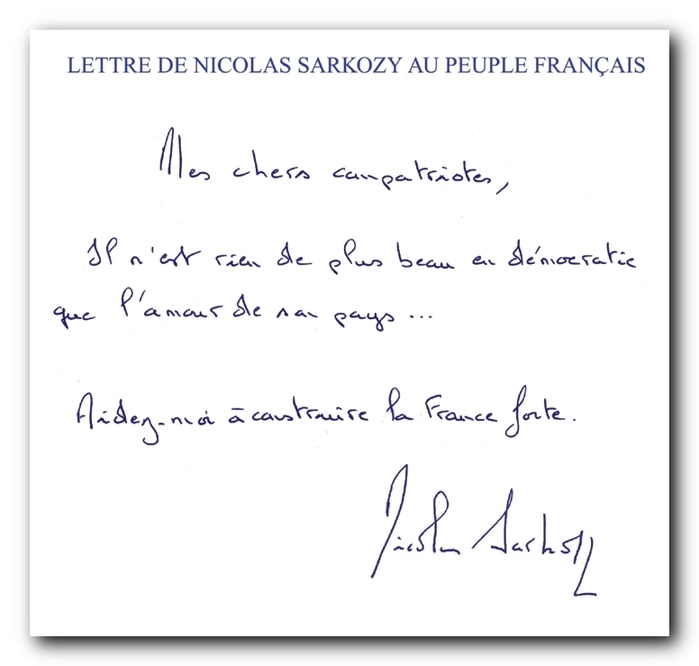 LETTRE DE NICOLAS SARKOZY AU PEUPLE FRANÇAIS
Mes chers compatriotes,
Il n'est rien de plus beau en démocratie
que l'amour de son pays...
Aidez-moi à construire la France forte.
Nicolas Sarkozy